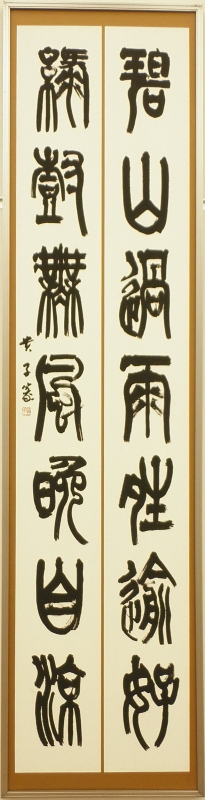 碧山過雨晴逾好
綠樹無風晩自涼